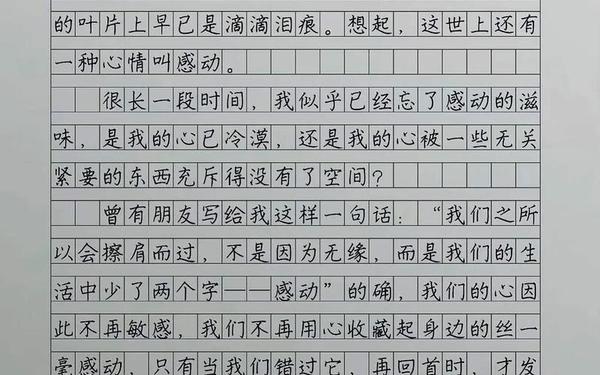 的叶片上早已是滴滴泪痕。想起，这世上还有
一种心情叫感动。
很长一段时间，我似乎已经忘了感动的滋
味，是我的心已冷漠，还是我的心被一些无关
紧要的东西充斥得没有了空间？
曾有朋友写给我这样一句话：“我们之所
以会擦肩而过，不是因为无缘，而是我们的生
活中少了两个字——感动”的确，我们的心因
此不再敏感，我们不再用心收藏起身边的丝一
毫感动，只有当我们错过它，再回首时，才发